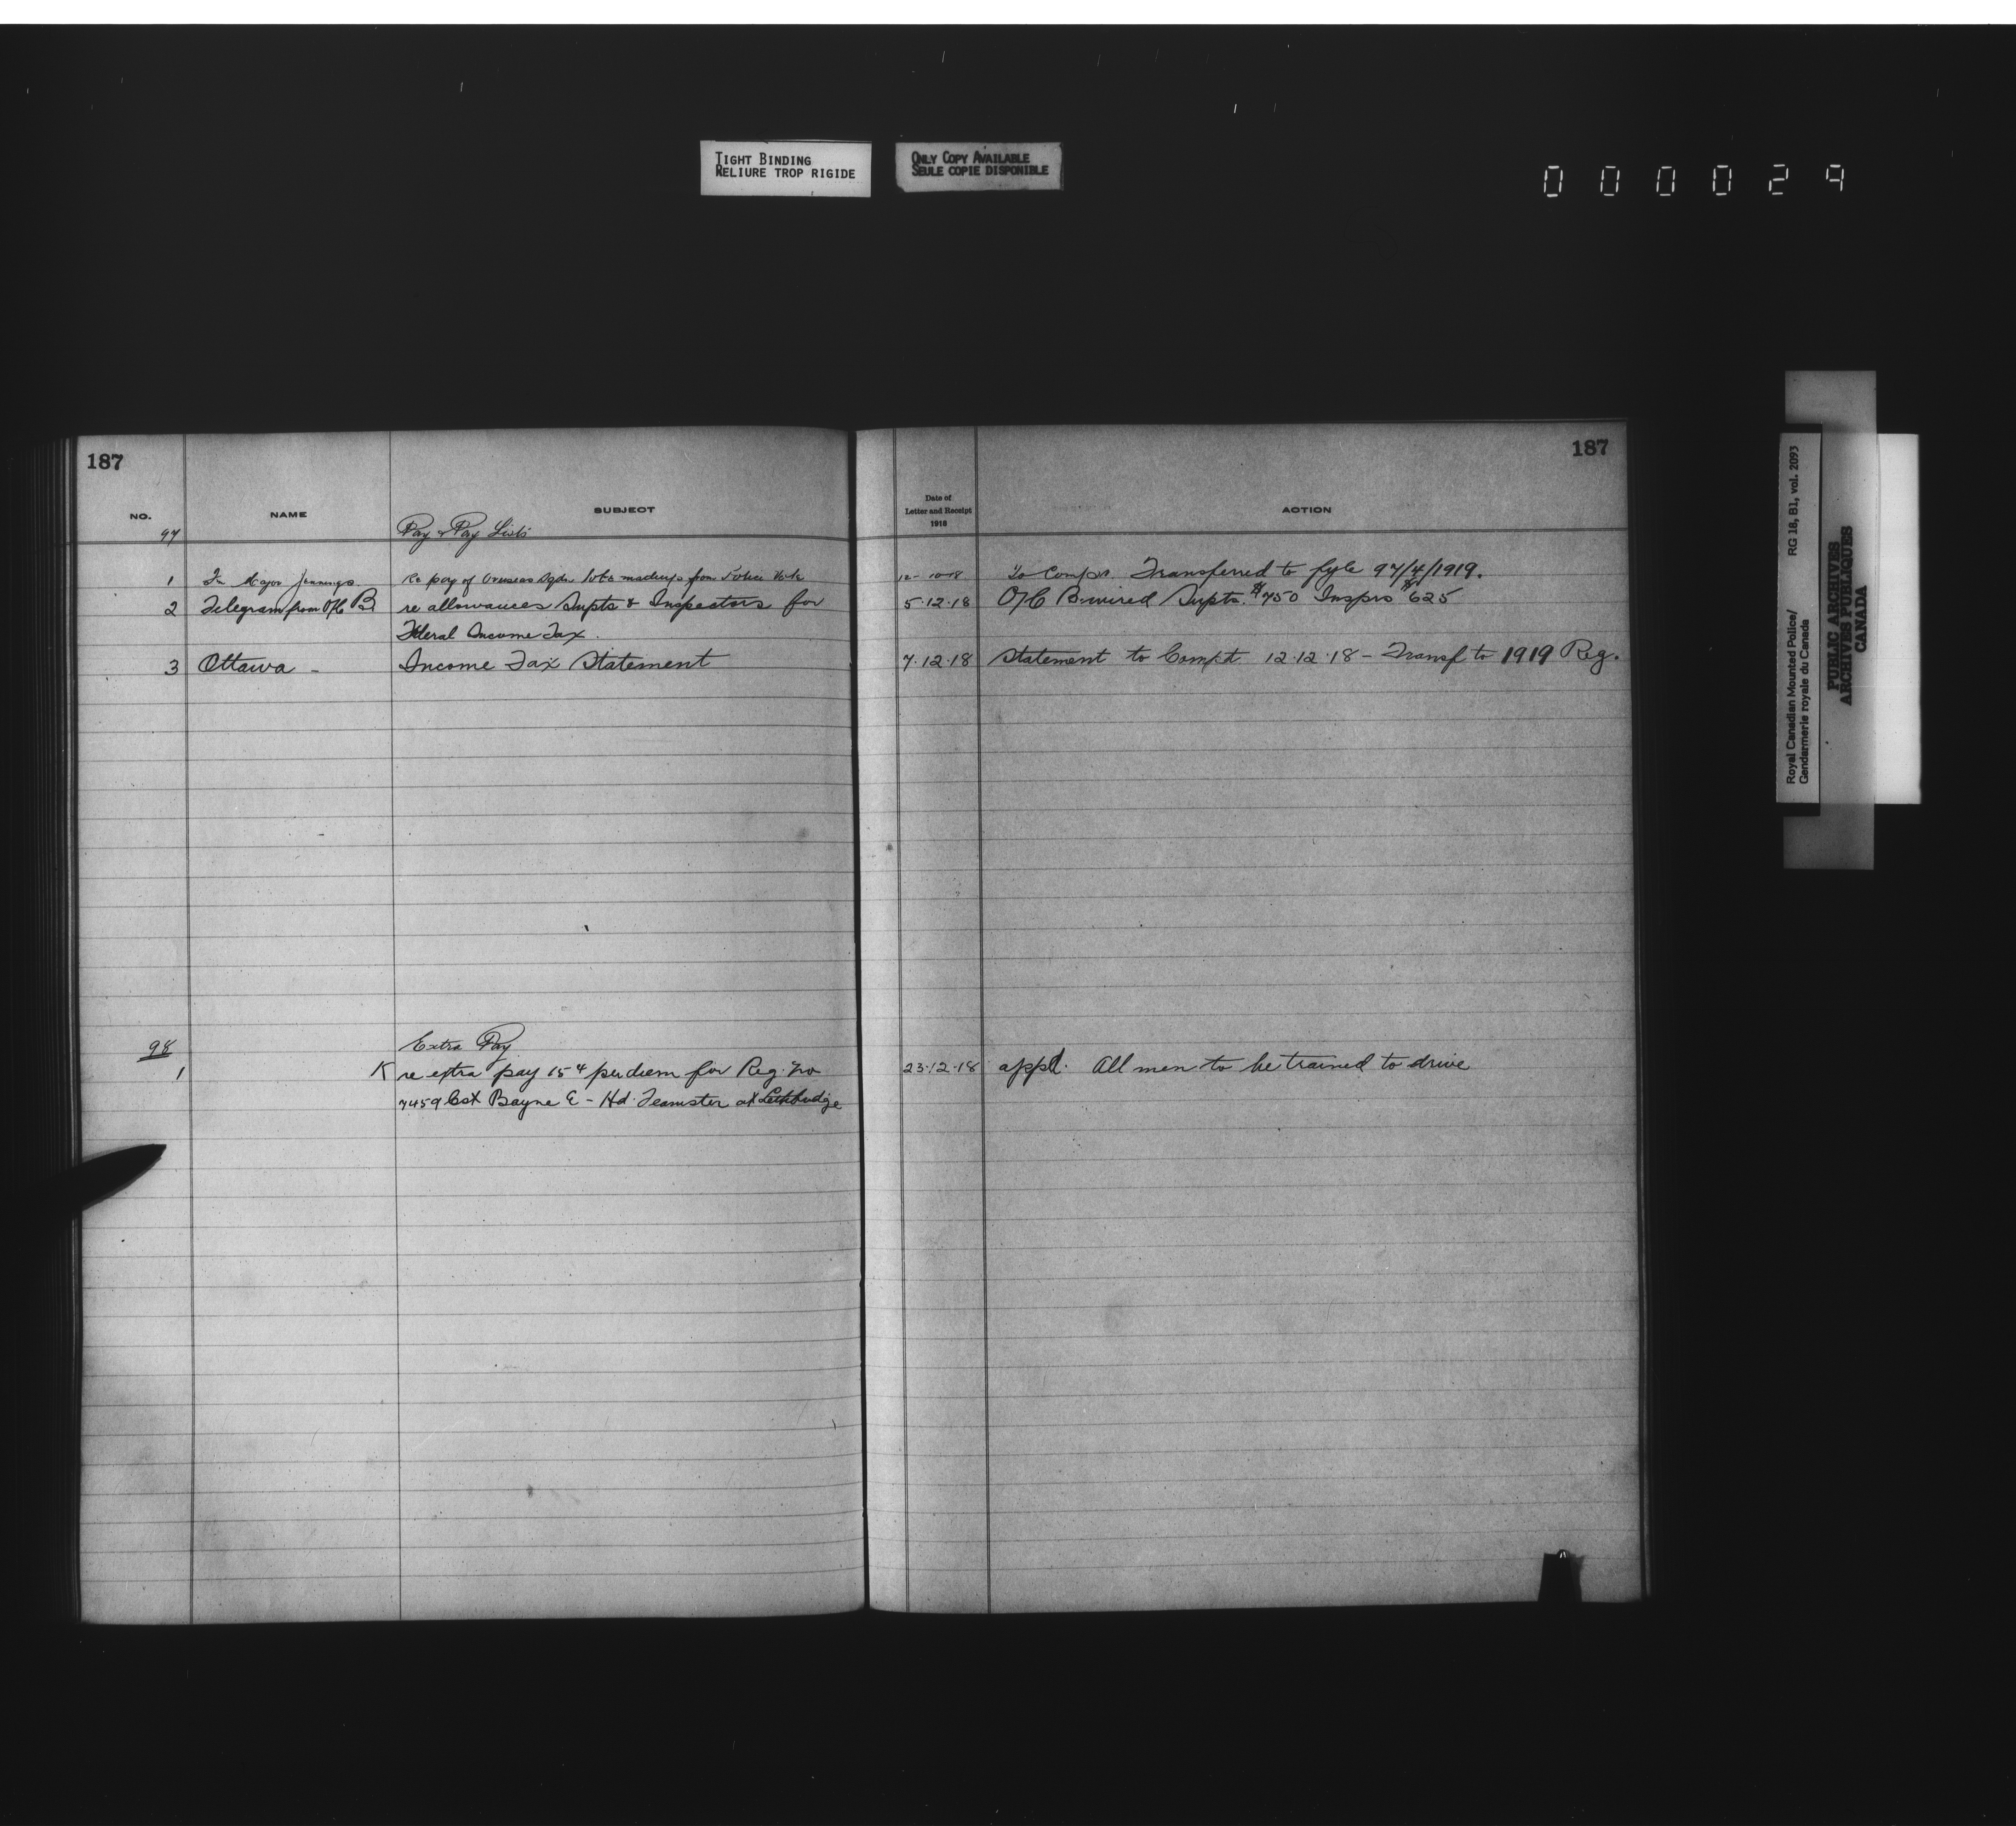 TIGHT BINDING
RELIURE TROP RIGIDE
ONLY COPY AVAILABLE
SEULE COPIE DISPONIBLE
000029
187
NO. NAME SUBJECT
97 Pay & Pay Lists
1 Major Jennings Re pay of Overseas from Police
2 Telegram from O/C B re allowances Supts & Inspectors for
Federal Income Tax.
3 Ottawa - Income Tax Statement
98 Extra Pay
1 K re extra pay 15¢ per diem for Reg. No
7459 Cst Bayne E - Hd. Teamster at Lethbridge
187
Date of
Letter and Receipt
1918
ACTION
12-10-18 To Compr. Transferred to fyle 97/4/1919.
5.12.18 O/C B. wired Supts. $750 Insprs $625
7.12.18 Statement to Compt 12.12.18 - Transf to 1919 Reg.
23.12.18 appd. All men to be trained to drive
Royal Canadian Mounted Police/ RG 18, B1, vol. 2093
Gendarmerie royale du Canada
PUBLIC ARCHIVES
ARCHIVES PUBLIQUES
CANADA